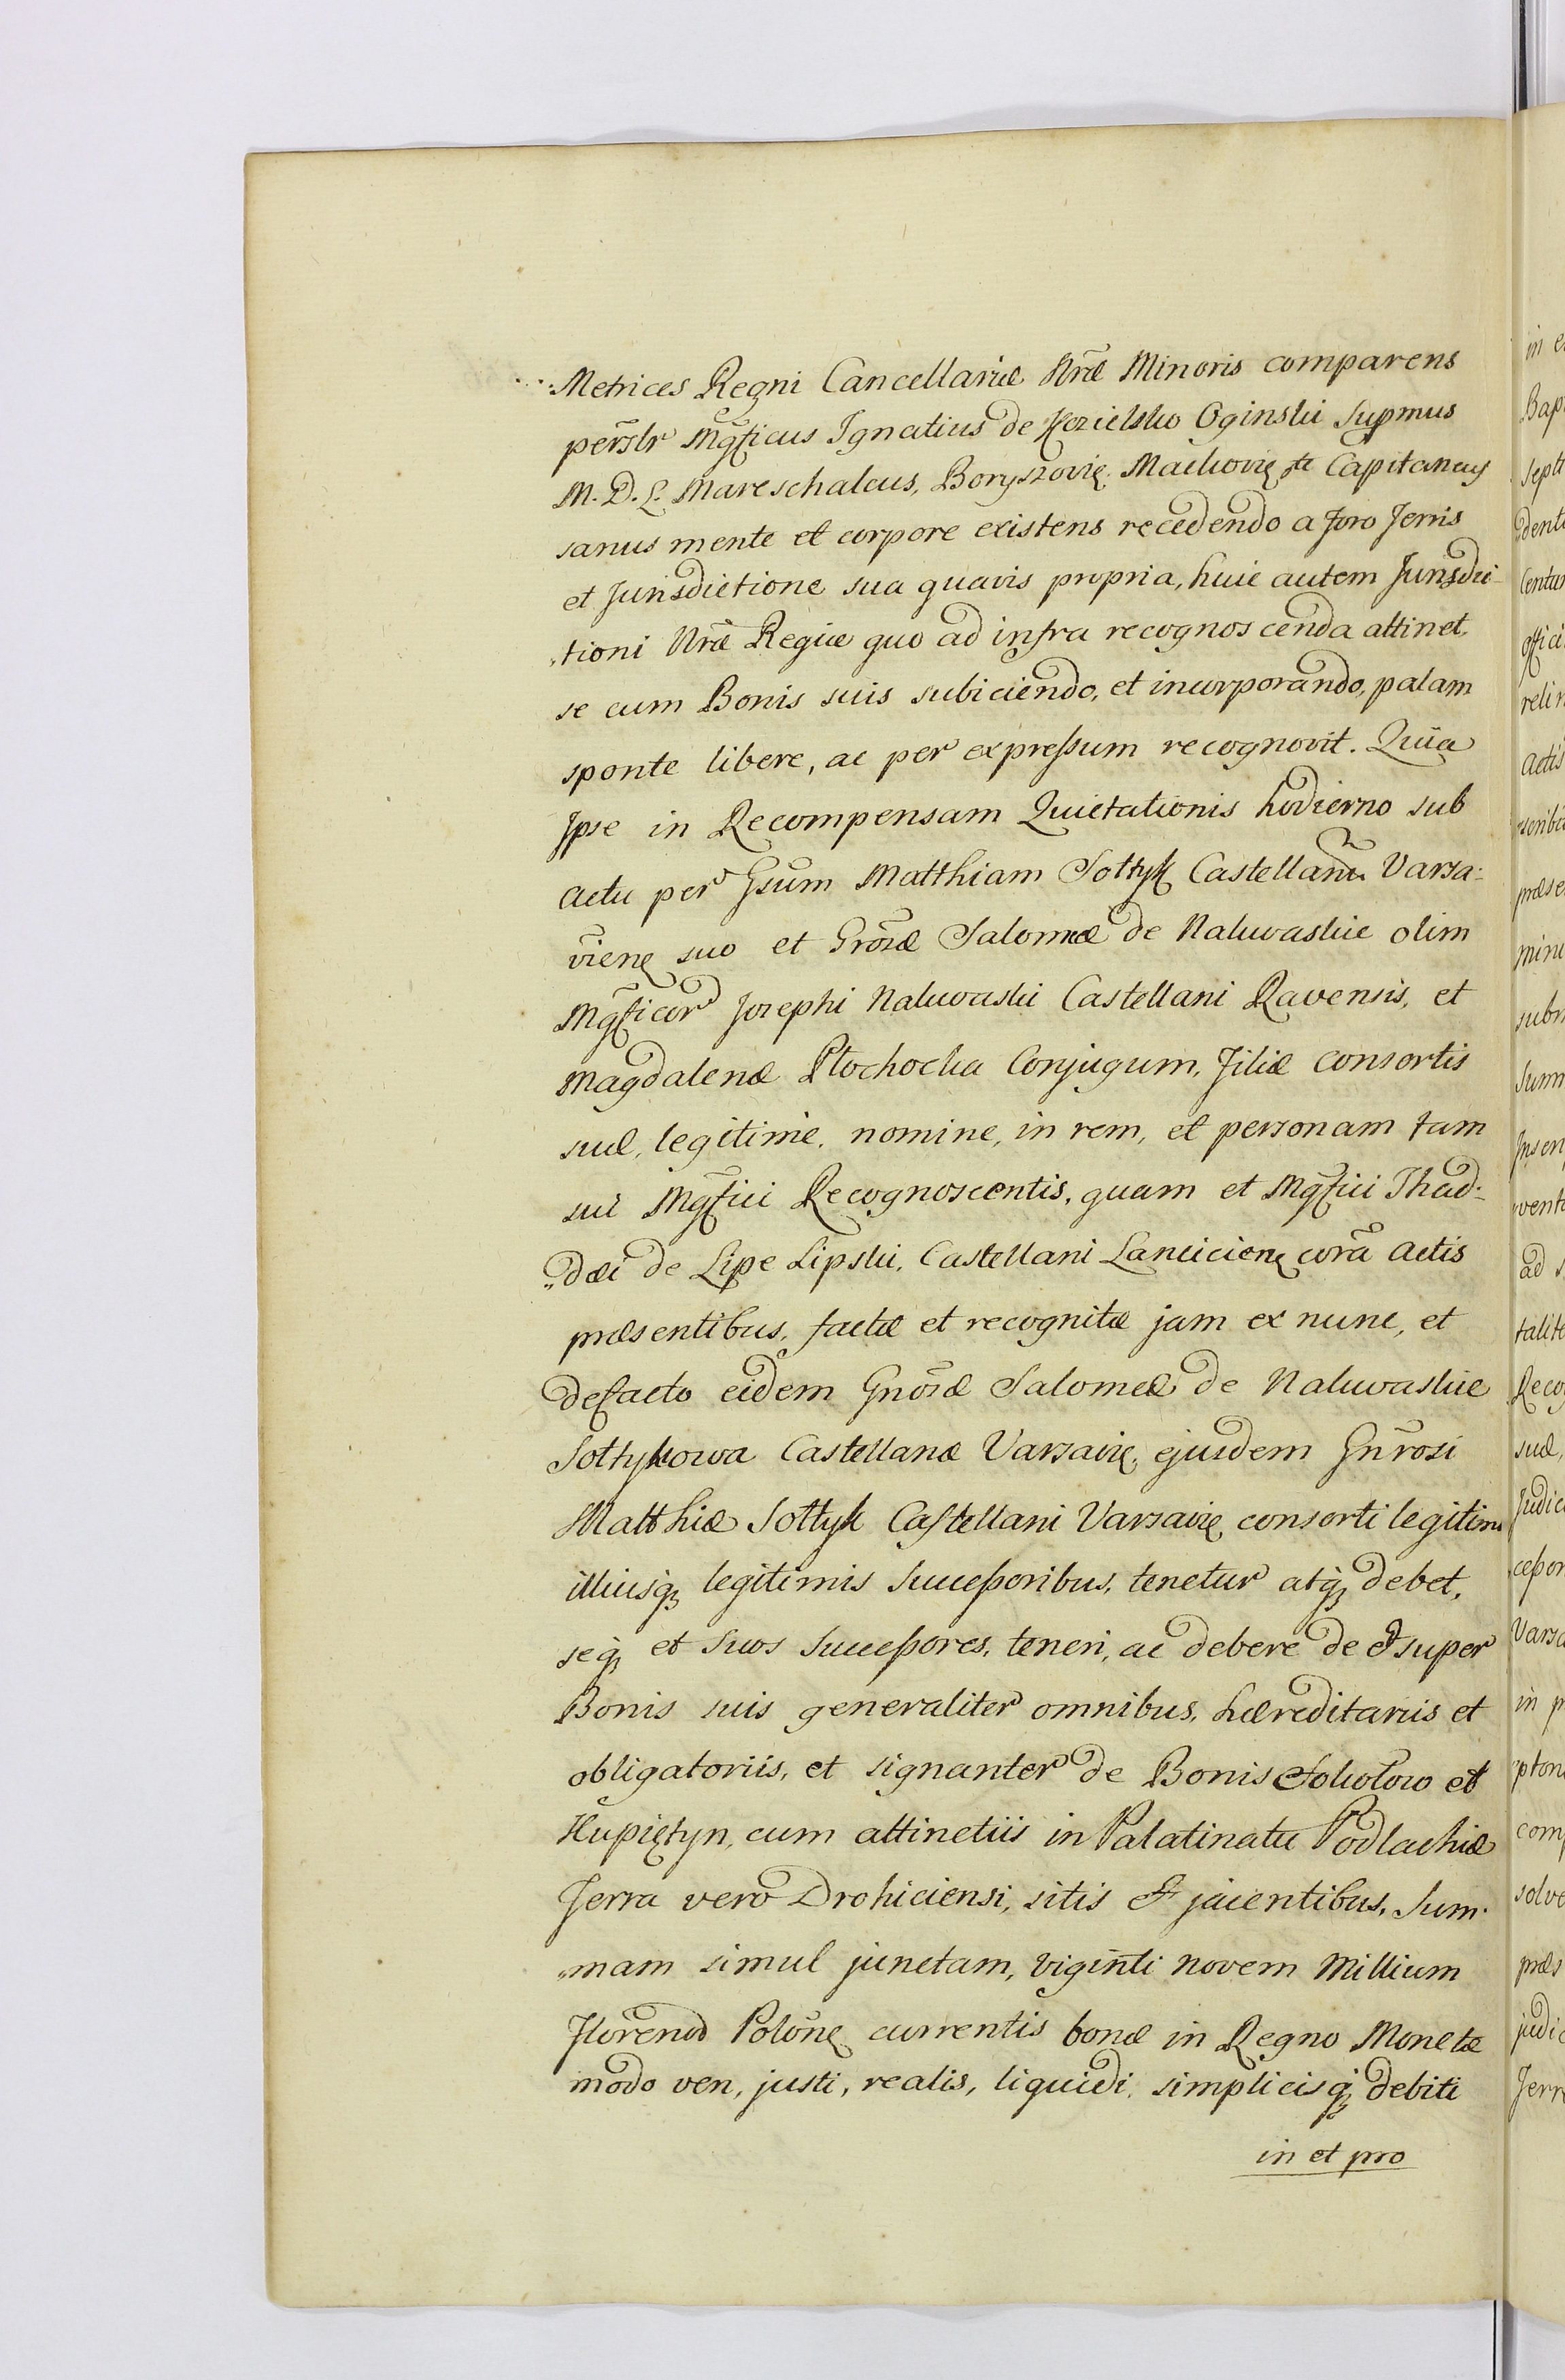 Metrices Regni Cancellariæ Nræ Minoris comparens
persłr Mgficus Ignatius de Kozielsko Oginski Supmus
M. D. L. Mareschalcus, Boryszovię. Maćkovię te Capitaneus
sanus mente et corpore existens recedendo a foro Terris
et Jurisdictione sua quavis propria, huic autem Jurisdic-
„tioni Nræ Regiæ quo ad infra recognoscenda attinet.
se cum Bonis suis subiciendo, et incorporando, palam
sponte libere, ac per expressum recognovit. Quia
Ipse in Recompensam Quietationis hodierno sub
actu per Gsum Matthiam Sołtyk Castellanū Varsa-
vienę suo et Grosæ Salomeæ de Nakwaskie olim
Mgficor Josephi Nakwaski Castellani Ravensis, et
Magdalenæ Płochocka Conjugum, Filiæ consortis
suæ, legitimæ. nomine, in rem, et personam tam
sui Mgfici Recognoscentis, quam et Mgfici Thad-
„dæi de Lipe Lipski, Castellani Lancicienę corā actis
præsentibus, factæ et recognitæ jam ex nunc, et
defacto eidem Gnosæ Salomeæ de Nakwaskie
Sołtykowa Castellanæ Varsavię, ejusdem Gnrosi
Matthiæ Sołtyk Castellani Varsavię consorti legitimæ
illiusq legitimis Successoribus, tenetur atq debet,
seq et Suos Successores, teneri, ac debere de & super
Bonis suis generaliter omnibus, hæreditariis et
obligatoriis, et signanter de Bonis Sokołow et
Kupiętyn, cum attinetiis in Palatinatu Podlachiæ
Terra vero Drohiciensi, sitis & jacentibus, Sum-
„mam simul junctam, viginti novem Millium
Florenod Polonę currentis bonæ in Regno Monetæ
modo veri, justi, realis, liquidi, simplicisq debiti
in et pro